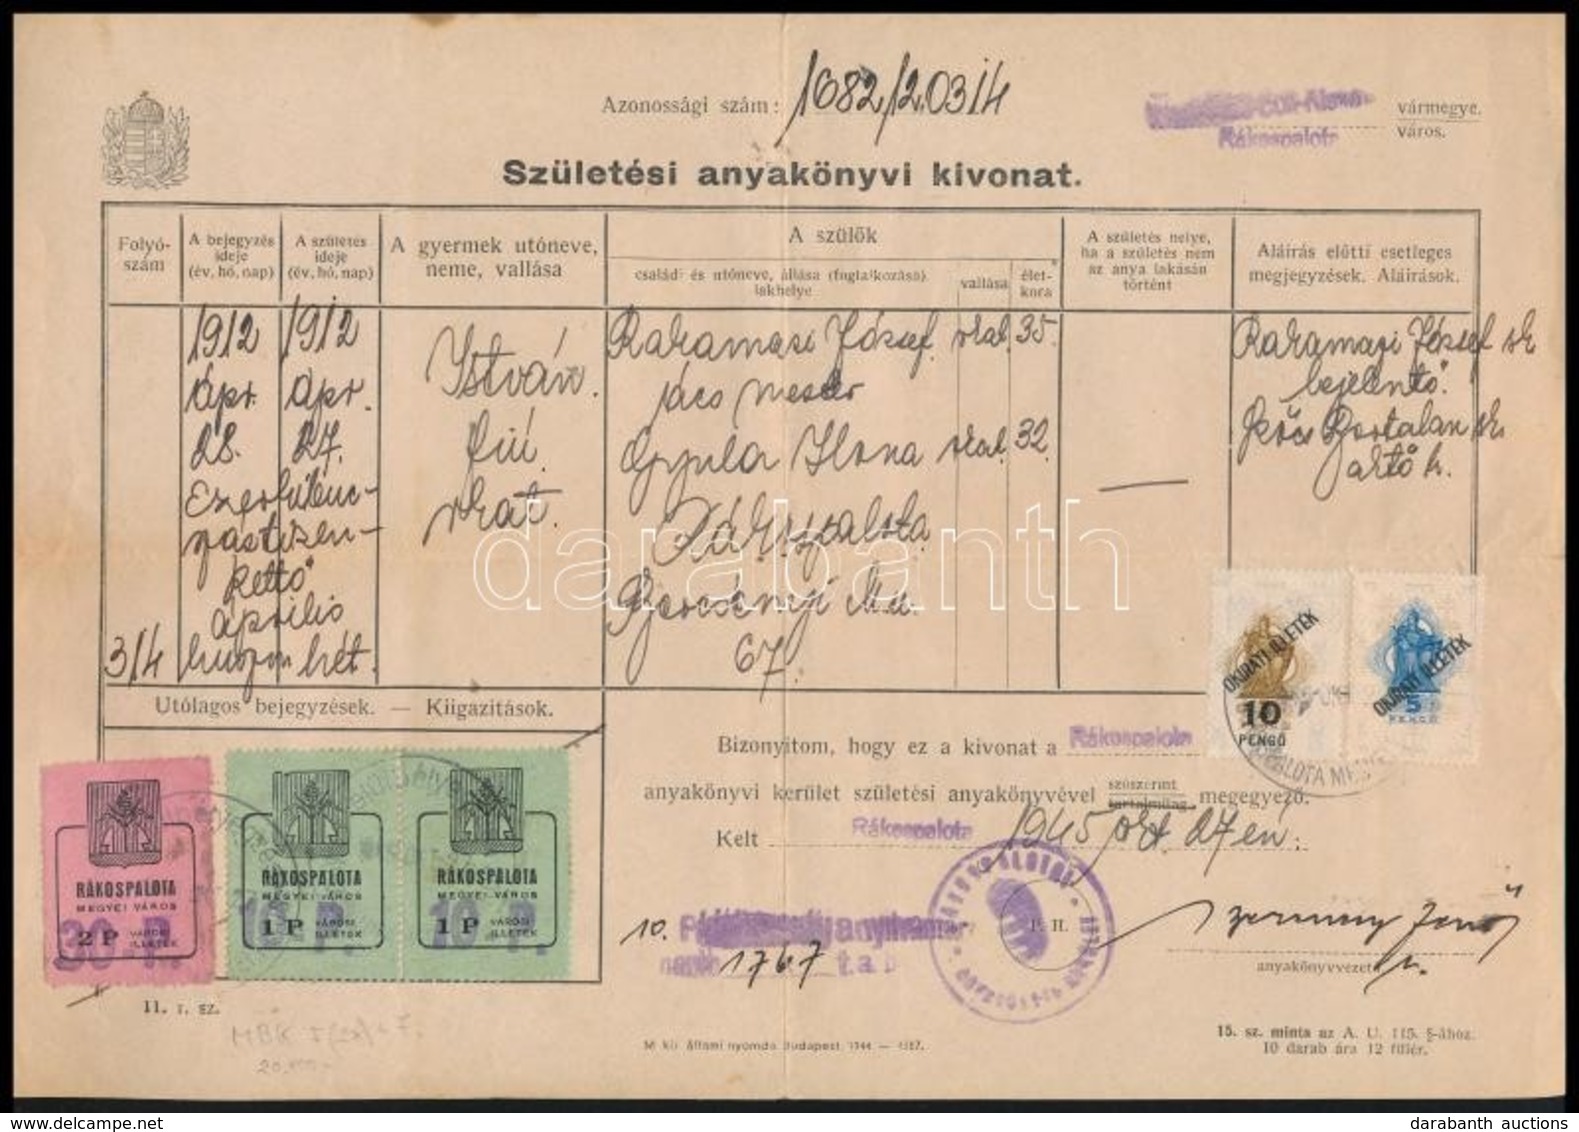 Azonossági szám: 1682/1203/4
vármegye.
Rákospalota város.
Születési anyakönyvi kivonat.
Folyó-
szám
A bejegyzés
ideje
(év, hó, nap)
A születés
ideje
(év, hó, nap)
A gyermek utóneve,
neme, vallása
A szülők
családi és utóneve, állása (foglalkozása),
lakhelye
vallása
élet-
kora
A születés helye,
ha a születés nem
az anya lakásán
történt
Aláírás előtti esetleges
megjegyzések. Aláírások.
314
1912
ápr.
28.
1912
ápr.
27.
Ezerkilenc-
száztizen-
kettő
április
huszonhét.
István
fiú.
rkat.
Rakamazi József rkat. 35.
ács mester
Gyula Ilona rkat. 32.
Rákospalota
Bercsényi M. u.
67.
—
Rakamazi József sk
bejelentő.
Bertalan sk.
Utólagos bejegyzések. — Kiigazítások.
OKIRATI ILLETÉK
10
PENGŐ
OKIRATI ILLETÉK
5
PENGŐ
RÁKOSPALOTA
MEGYEI VÁROS
2 P VÁROSI
ILLETÉK
30.-P.
RÁKOSPALOTA
MEGYEI VÁROS
1 P VÁROSI
ILLETÉK
10.-P.
RÁKOSPALOTA
MEGYEI VÁROS
1 P VÁROSI
ILLETÉK
10.-P.
Bizonyítom, hogy ez a kivonat a Rákospalota
anyakönyvi kerület születési anyakönyvével szószerint
tartalmilag megegyező.
Kelt Rákospalota 1945 okt 27 én.
P. H.
10.
1767
Jenő
anyakönyvvezető
11. r. sz.
M. kir. állami nyomda. Budapest, 1944 —
15. sz. minta az A. U. 115. §-ához.
10 darab ára 12 fillér.
darabanth
darabanth auctions